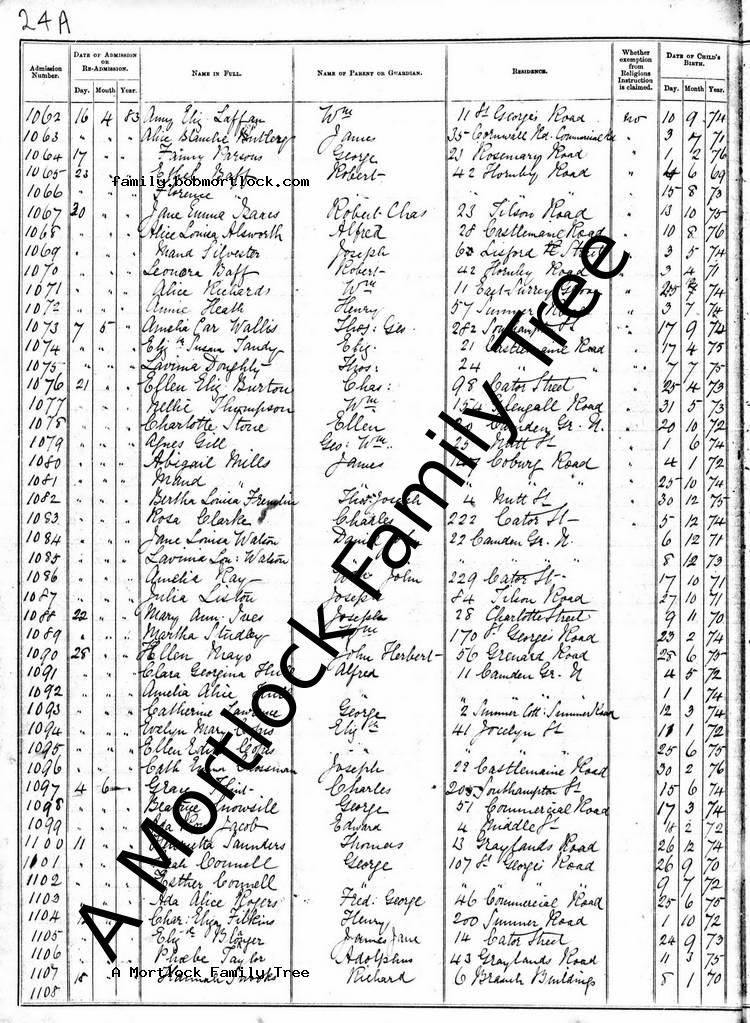 24A
Admission Number. Date of Admission or Re-Admission. Day. Month Year. Name in Full. Name of Parent or Guardian. Residence. Whether exemption from Religious Instruction is claimed. Date of Child's Birth. Day. Month Year.
1062 16 4 83 Amy Eliz. Laffan Wm 11 St Georges Road no 10 9 74
1063 " " " Alice Blanche James 35 Cornwall Rd. Commercial Rd " 3 7 71
1064 17 " " Fanny Parsons George 23 Rosemary Road " 1 2 76
1065 23 " " Robert 42 Hornby Road " 4 6 69
family.bobmortlock.com
1066 " " " Florence " " " " 15 8 73
1067 30 " " Jane Emma Isaacs Robert Chas 23 Tilson Road " 13 10 75
1068 " " " Alice Louisa Alsworth Alfred 28 Castlemaine Road " 10 8 76
1069 " " " Maud Silvester Joseph Lisford St " 3 5 74
1070 " " " Leonora Baff Robert 42 Hornby Road " 3 4 71
1071 " " " Alice Richards Wm 11 East Surrey 25 74
1072 " " " Annie Heath Henry 57 Sumner 3 7 74
1073 7 5 " Amelia Car Wallis Thos: Geo. 262 Southampton St " 17 9 74
1074 " " " Eliz.th Susan Tandy Eliz: 21 Castlemaine Road " 17 4 75
1075 " " " Lavinia Doughty Thos: 24 " " " 7 7 75
1076 21 " " Ellen Eliz Burton Chas: 98 Cator Street " 25 4 73
1077 " " " Nellie Thompson Wm 154 Glengall Road " 31 5 73
1078 " " " Charlotte Stone Ellen Camden Gr. N. " 20 10 72
1079 " " " Agnes Gill Geo: Wm. 25 Nutt St " 6 74
1080 " " " Abigail Mills James Coburg Road " 4 1 72
1081 " " " Maud " " " " 25 10 74
1082 " " " Bertha Louisa Thos Joseph 4 Nutt St " 30 12 75
1083 " " " Rosa Clarke Charles 222 Cator St " 5 12 74
1084 " " " Jane Louisa Watson Daniel 22 Camden Gr. N. " 6 12 71
1085 " " " Lavinia Lou: Watson " " " 8 12 73
1086 " " " Amelia Ray John 229 Cator St " 17 10 71
1087 " " " Julia Liston Joseph 84 Tilson Road " 27 10 71
1088 22 " " Mary Ann Ives Joseph 28 Charlotte Street " 9 11 70
1089 " " " Martha Studley 170 St Georges Road " 23 2 74
1090 28 " " Hellen Mayo John Herbert 56 Grenard Road " 28 6 75
1091 " " " Clara Georgina Alfred 11 Camden Gr. N " 4 5 72
1092 " " " Amelia Alice " " " " 1 1 74
1093 " " " Catherine Lawrence George 2 Sumner Cott: Sumner Road " 12 3 74
1094 " " " Evelyn Mary Eliz.th 41 Jocelyn St " 1 72
1095 " " " Ellen " " " " 25 6 75
1096 " " " Cath Joseph 22 Castlemaine Road " 30 2 76
1097 4 6 " Grace Charles Southampton St " 15 6 74
1098 " " " Beatrice Knowsill George 51 Commercial Road " 17 3 74
1099 " " " Jacob Edward 4 Middle St " 2 72
1100 11 " " Saunders Thomas 13 Graylands Road " 26 12 74
1101 " " " Connell George 107 St Georges Road " 26 9 70
1102 " " " Esther Connell " " " " 9 7 72
1103 " " " Ada Alice Rogers Fred: George 46 Commercial " " 25 6 75
1104 " " Char: Eliza Filkins Henry 200 Sumner Road " 1 10 72
1105 " " " Eliz.th James Jane 14 Cator Street " 24 9 73
1106 " " " Phoebe Taylor Adolphus 43 Graylands Road " 11 3 75
1107 18 " " Hannah Brooks Richard 6 Branch Buildings " 8 1 70
A Mortlock Family Tree
1108
A Mortlock Family Tree